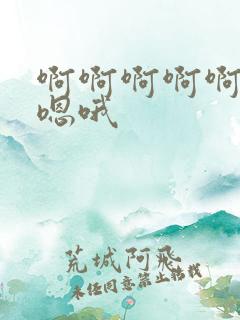 啊啊啊啊啊
嗯哦
荒城阿飛
未经同意禁止转载